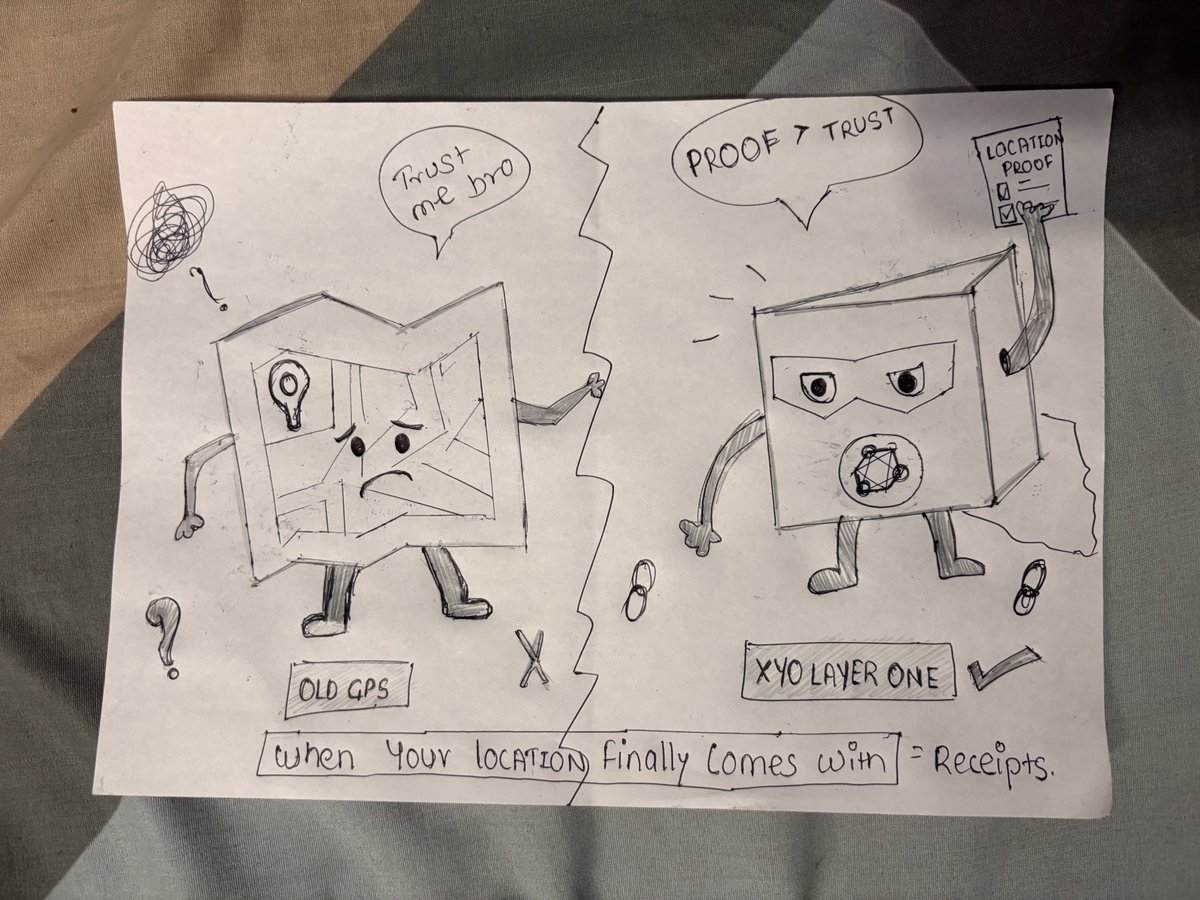 Trust
me bro
PROOF > TRUST
LOCATION
PROOF
?
?
OLD GPS
X
XYO LAYER ONE
When Your LOCATION Finally Comes with = Receipts.